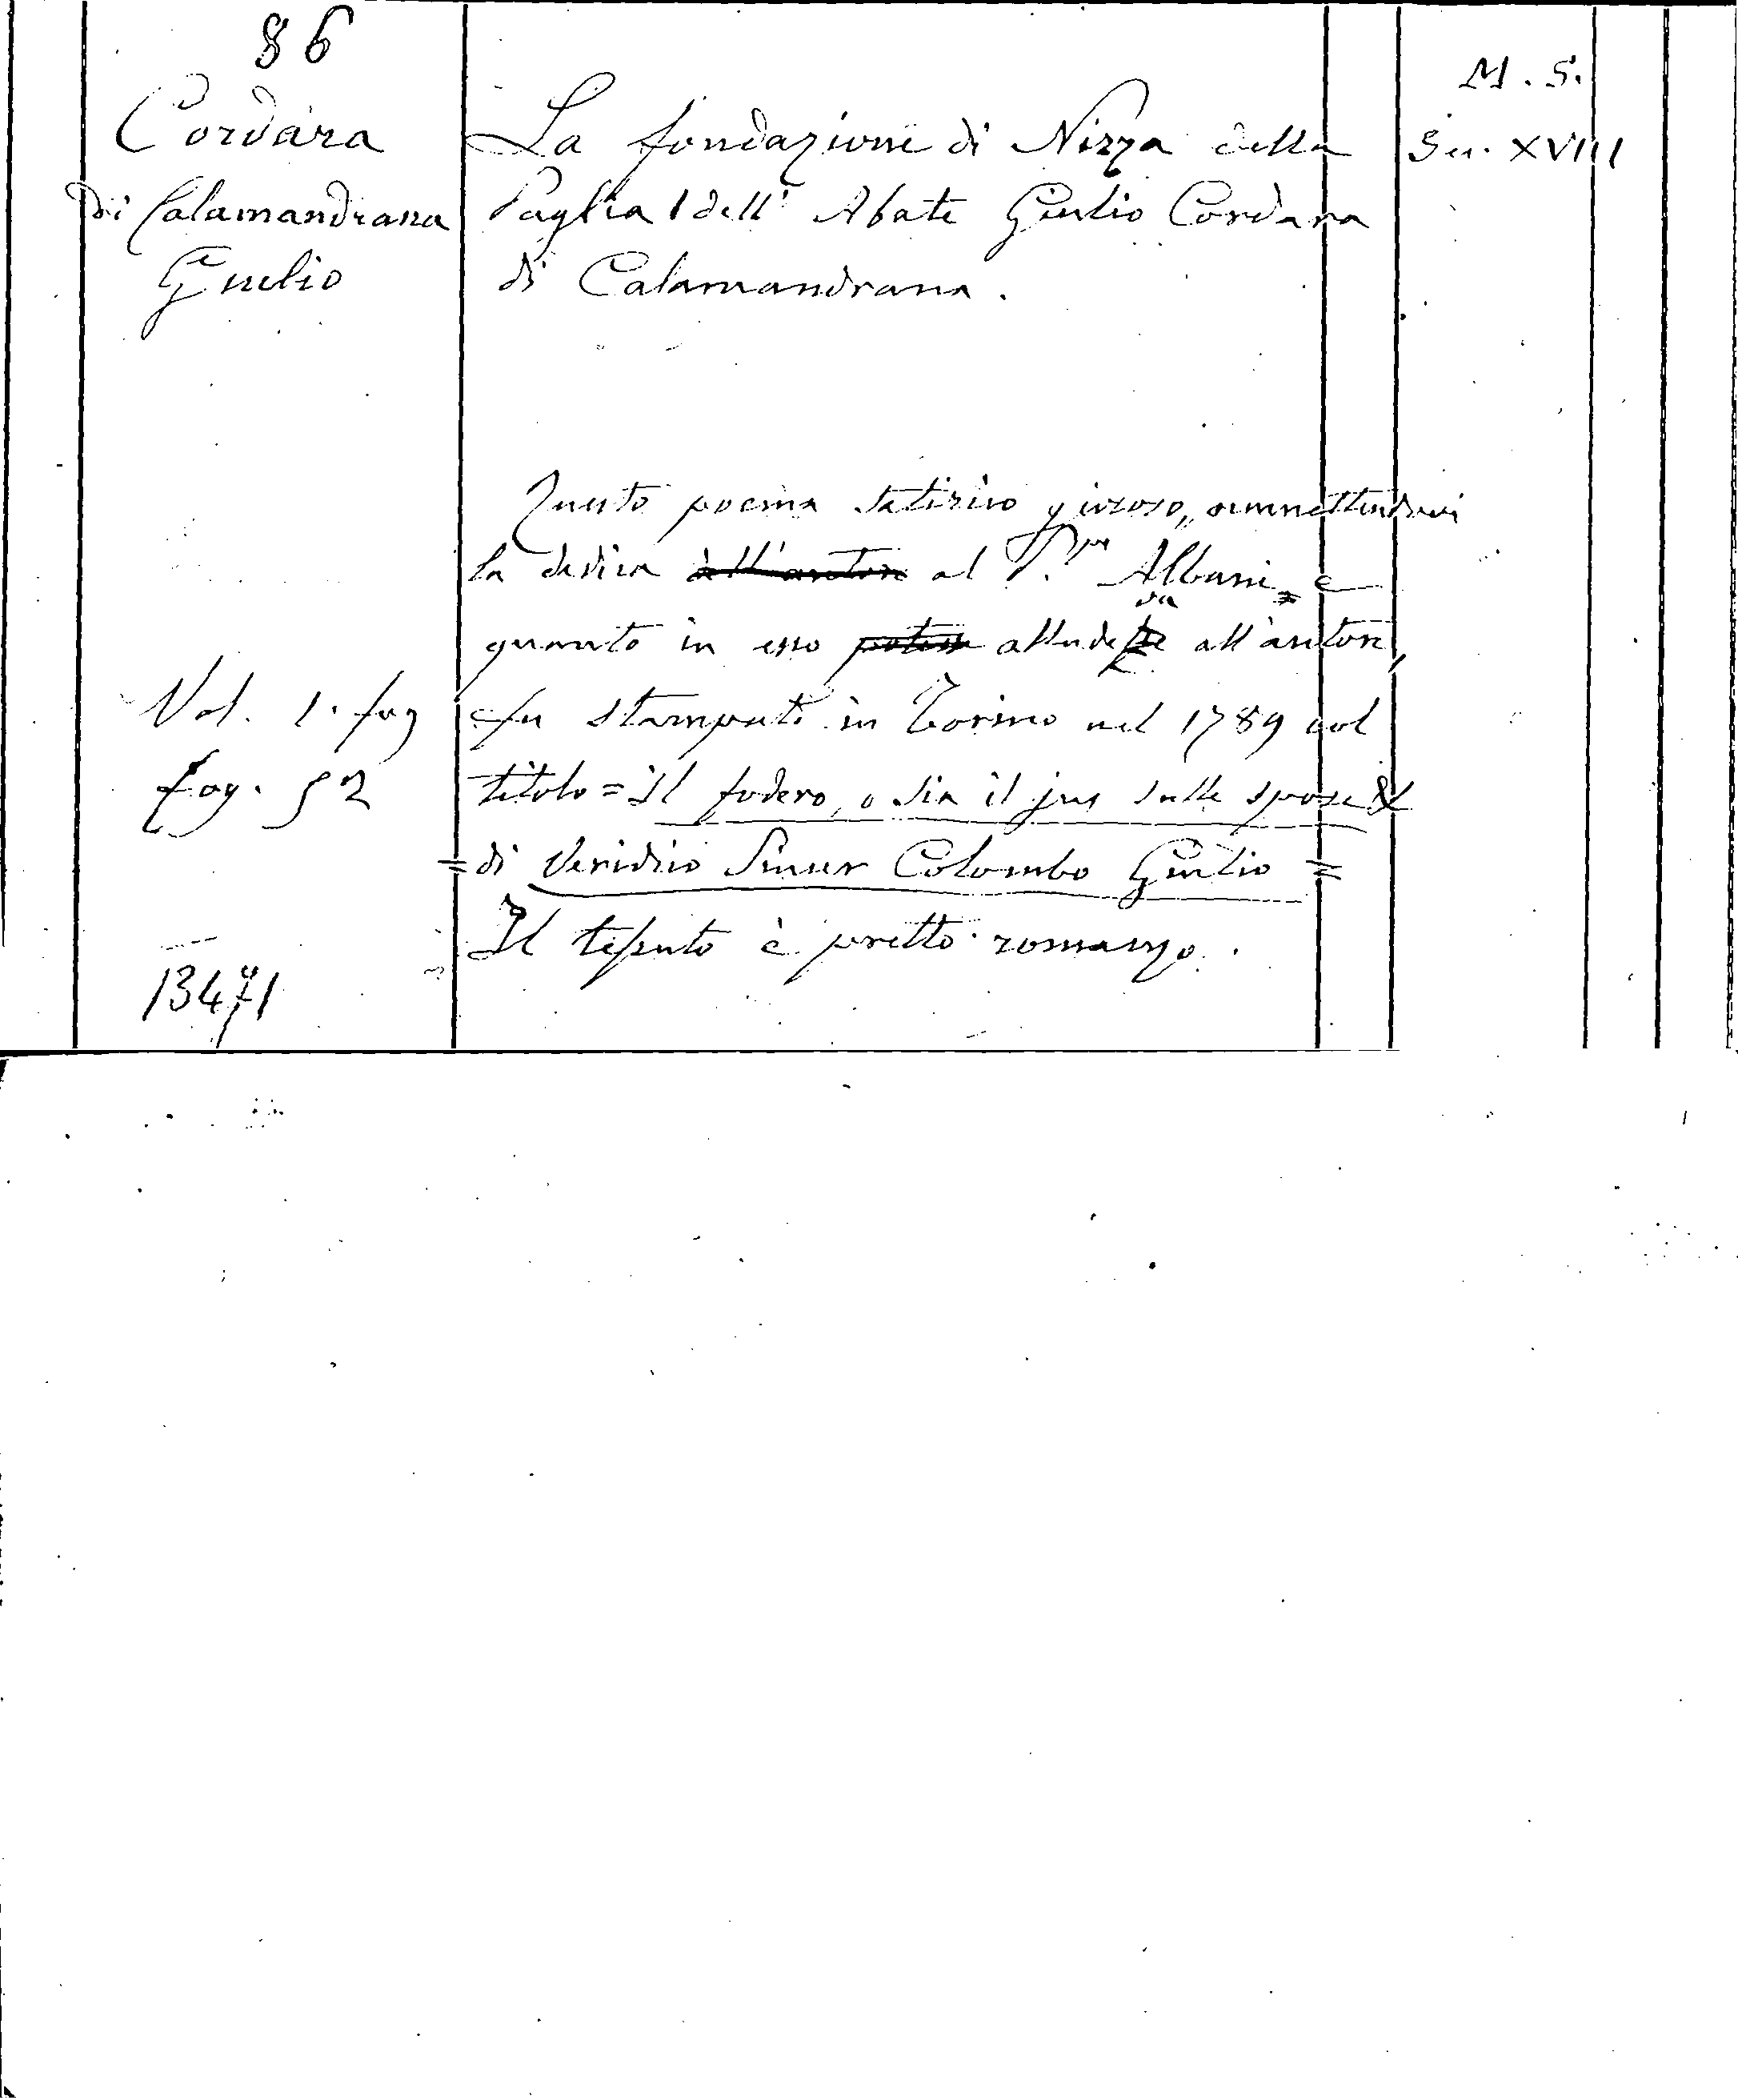 86
Cordara
di Calamandrana
Giulio
La fondazione di Nizza della
Paglia / dell' Abate Giulio Cordara
di Calamandrana.
M. S.
Sec. XVIII
Questo poema satirico giocoso, ommettendovi
la dedica dell'autore al P.pe Albani e
quanto in esso allude va all'autore,
e fu stampato in Torino nel 1789 col
titolo = Il fodero, o sia il jus sulle spose &
= di Veridico Sincer Colombo Giulio =
Il tessuto è pretto romanzo.
Vol. 1. fag
fag. 52
13471